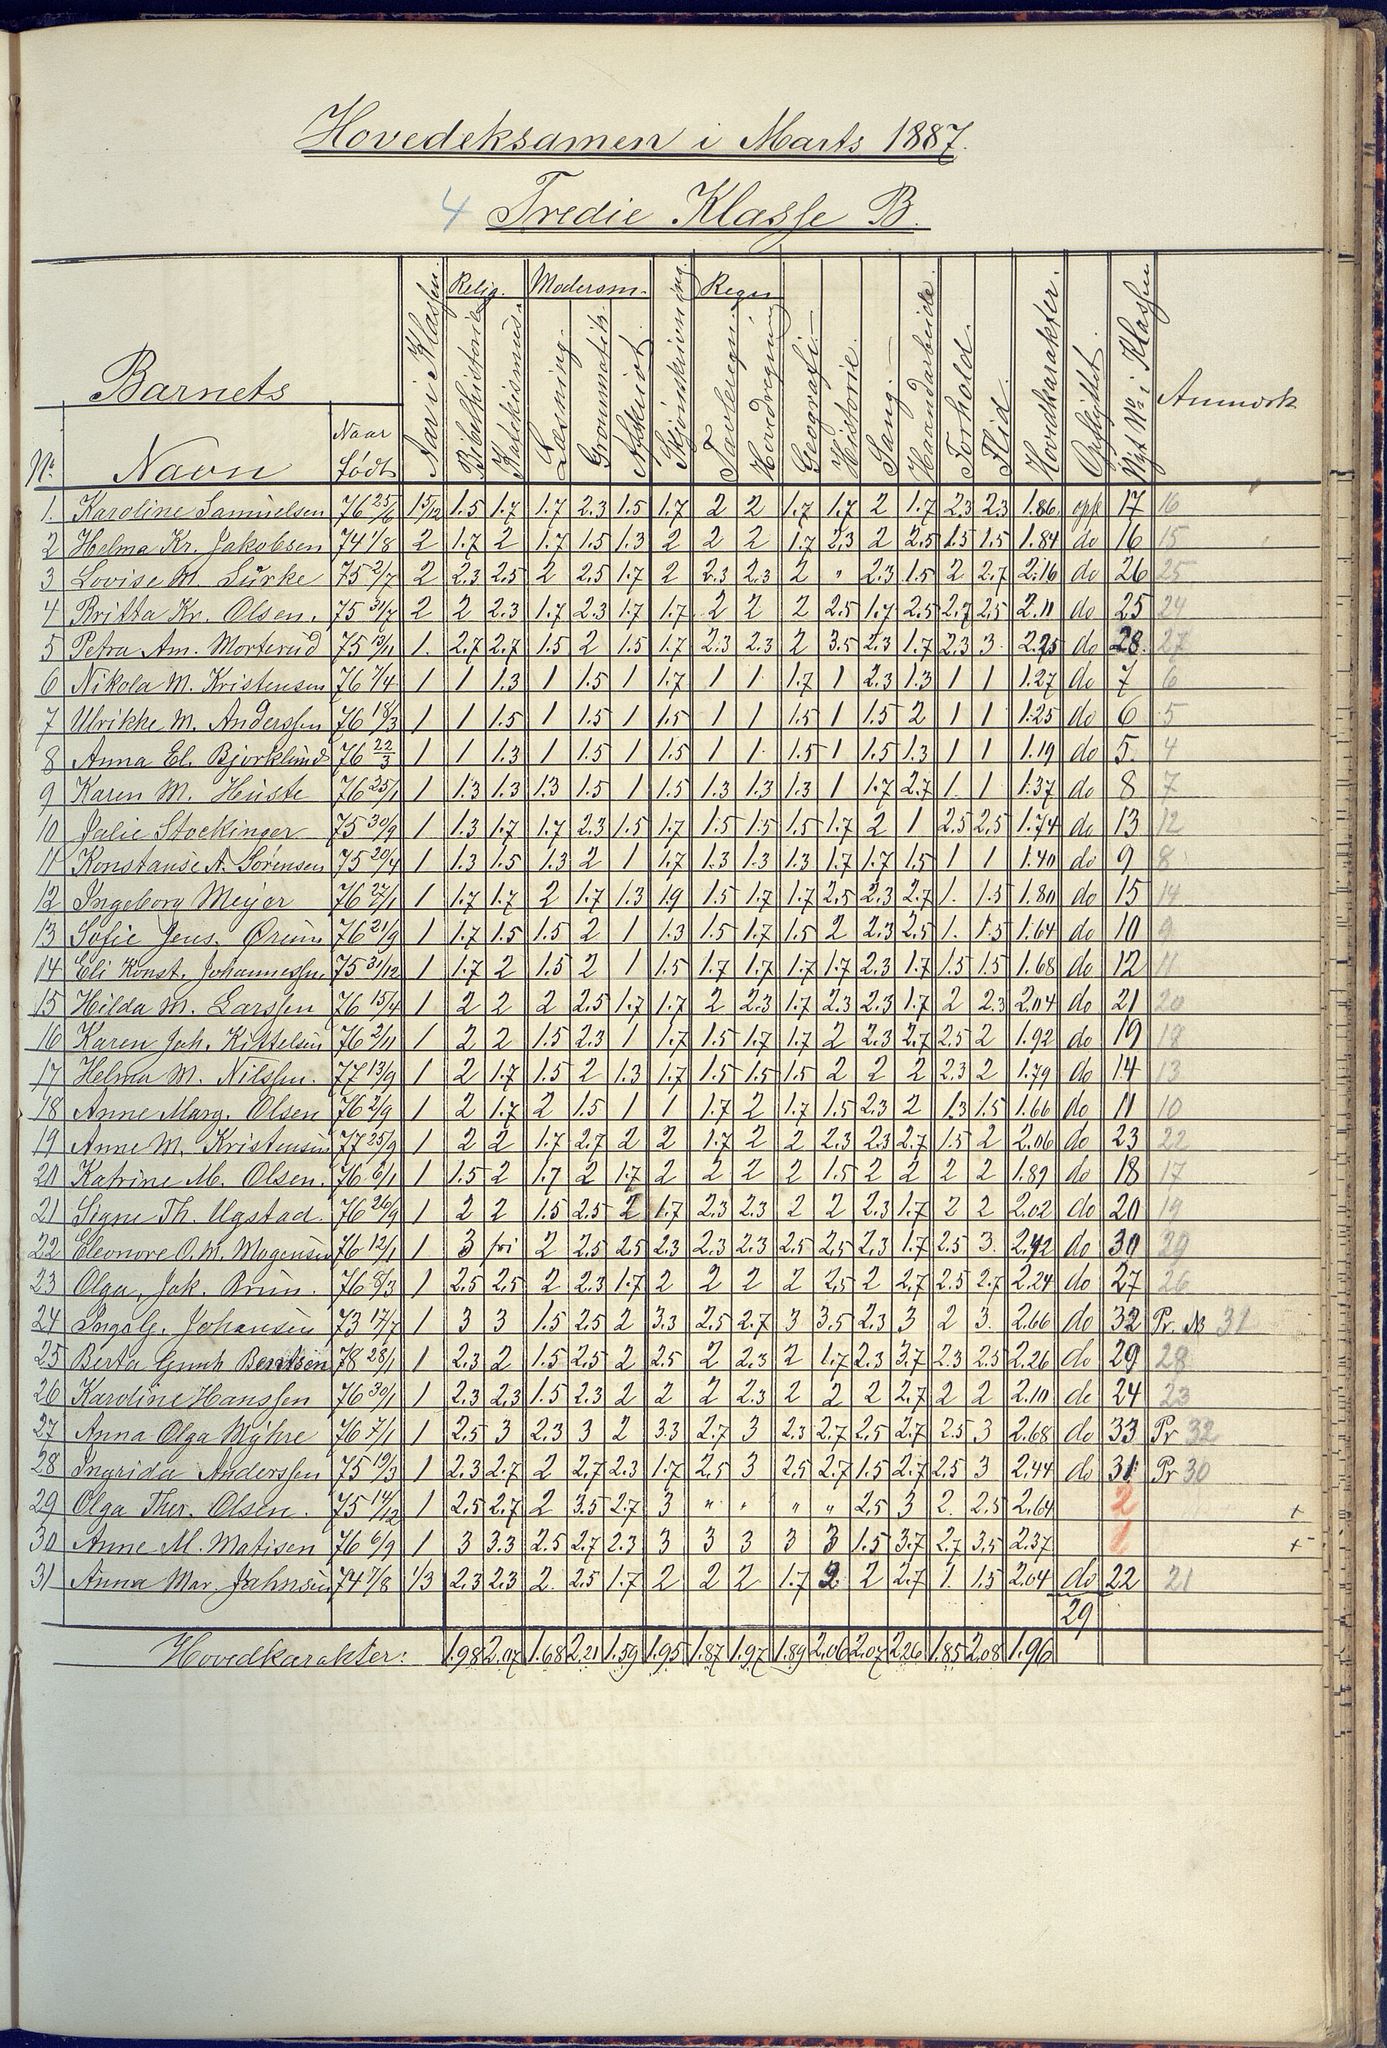 Hovedeksamen i Marts 1887.
4 Tredie Klasse B.
Barnets
No. Navn Naar født Aar i Klassen. Relig. Bibelhistorie Katekismus. Modersm. Læsning. Grammatik. Afskrivt Skjønskrivning. Regn Tavleregn. Hovedregning Geografi Historie. Sang Haandarbeide. Forhold. Flid. Hovedkarakter. Opflyttet. Nyt No. i Klassen Anmærk
1. Karoline Samuelsen 76 25/6 15/12 1.5 1.7 1.7 2.3 1.5 1.7 2 2 1.7 1.7 2 1.7 2.3 2.3 1.86 opf 17 16
2 Helma Kr. Jakobsen 74 1/8 2 1.7 2 1.7 1.5 1.3 2 2 2 1.7 2.3 2 2.5 1.5 1.5 1.84 do 16 15
3 Lovise M. Lurke 75 2/7 2 2.3 2.5 2 2.5 1.7 2 2.3 2.3 2 " 2.3 1.5 2 2.7 2.16 do 26 25
4 Britta Kr. Olsen. 75 31/7 2 2 2.3 1.7 2.3 1.7 1.7 2 2 2 2.5 1.7 2.5 2.7 2.5 2.11 do 25 24
5 Petra Am. Morterud 75 13/11 1. 2.7 2.7 1.5 2 1.5 1.7 2.3 2.3 2 3.5 2.3 1.7 2.3 3. 2.25 do 28. 27
6 Nikola M. Kristensen 76 7/4 1 1 1.3 1 1.5 1 1.7 1 1 1.7 1 2.3 1.3 1 1 1.27 do 7 6
7 Ulrikke M. Anderssen 76 18/3 1 1 1.5 1 1.5 1 1.5 1 1 1.5 1 1.5 2 1 1 1.25 do 6 5
8 Anna El. Bjorklund 76 22/3 1 1 1.3 1 1.5 1 1.5 1 1. 1.5 1 1.5 1.3 1 1 1.19 do 5. 4
9 Karen M. Huste 76 25/1 1 1.3 1.3 1.3 1.5 1 1.5 1.3 1.3 1.3 1 1.7 2.7 1. 1 1.37 do 8 7
10 Julie Stockinger 75 30/9 1 1.3 1.7 1.7 2.3 1.5 1.7 1.5 1.5 1.5 1.7 2 1 2.5 2.5 1.74 do 13 12
11 Konstanse A. Sørensen 75 20/4 1 1.3 1.5 1.3 2 1 1.7 1.3 1.3 1.3 1.7 1.7 1.5 1 1 1.40 do 9 8
12 Ingeborg Meyer 76 27/1 1 1.7 1.7 2 1.7 1.3 1.9 1.5 1.7 1.7 2.5 2.3 2.7 1. 1.5 1.80 do 15 14
13 Sofie Jens. Ørum 76 21/9 1 1.7 1.5 1.5 2 1 1.3 1.5 1.7 1.5 2 2.3 2.5 1. 1.5 1.64 do 10 9
14 Eli Konst. Johannessn. 75 31/12 1 1.7 2 1.5 2 1 1.5 1.7 1.7 1.7 1.7 2.3 1.7 1.5 1.5 1.68 do 12 11
15 Hilda M. Larssen 76 15/4 1 2 2 2 2.5 1.7 1.7 2 2.3 1.7 2.3 2.3 1.7 2 2.3 2.04 do 21 20
16 Karen Joh. Kittelsen 76 2/11 1 2 2 1.5 2.3 1 1.7 1.5 1.7 1.7 2 2.3 2.7 2.5 2 1.92 do 19 18
17 Helma M. Nilssen. 77 13/9 1 2 1.7 1.5 2 1.3 1.7 1.5 1.5 1.5 2 2 2 2.3 2 1.79 do 14 13
18 Anne Marg. Olsen 76 2/9 1 2 1.7 2 1.5 1 1 1.7 2 1.7 1.5 2.3 2 1.3 1.5 1.66 do 11 10
19 Anne M. Kristensen 77 25/9 1 2 2 1.7 2.7 2 2 1.7 2 2 2.3 2.3 2.7 1.5 2 2.06 do 23 22
20 Katrine M. Olsen. 76 6/1 1 1.5 2 1.7 2 1.7 2 2 2 2 1.5 2 2 2 2 1.89 do 18 17
21 Signe Th. Ugstad. 76 26/9 1 2 2 1.5 2.5 2 1.7 2.3 2.3 2 2 2.3 1.7 2 2 2.02 do 20 19
22 Eleonore O. K. Mogensen 76 12/1 1 3 fri 2 2.5 2.5 2.3 2.3 2.3 2.5 2.5 2.3 1.7 2.5 3. 2.42 do 30 29
23 Olga, Jak. Brun. 76 8/3 1 2.5 2.5 2 2.3 1.7 2 2 2 2 2.5 2 2.7 2.5 2.7 2.24 do 27 26
24 Inga G. Johansen 73 17/7 1 3 3 1.5 2.5 2 3.3 2.5 2.7 3 3.5 2.3 3 2 3. 2.66 do 32 Pr. No 31
25 Berta Gunh Berntsen 78 28/1 1 2.3 2 1.5 2.5 2 2.5 2 2.3 2 1.7 2.3 3.7 2.3 2.5 2.26 do 29 28
26 Karoline Hanssen 76 30/1 1 2.3 2.3 1.5 2.3 2 2 2 2.3 2 2 2 2.7 2 2 2.10 do 24 23
27 Anna Olga Myhre 76 7/1 1 2.5 3 2.3 3 2 3.3 2.7 3 2.3 2.7 2.5 2.7 2.5 3 2.68 do 33 Pr 32
28 Ingrida Anderssen 75 19/3 1 2.3 2.7 2 2.7 2.3 1.7 2.5 3 2.5 2.7 1.5 2.7 2.5 3 2.44 do 31 Pr 30
29 Olga Ther. Olsen. 75 14/12 1 2.5 2.7 2 3.5 2.7 3 " " " " 2.5 3 2. 2.5 2.64 2 +
30 Anne M. Matisen 76 6/9 1 3 3.3 2.5 2.7 2.3 3 3 3 3 3 1.5 3.7 2.7 3.5 2.37 1 +
31 Anna Mar. Jahnsen 74 7/8 1/3 2.3 2.3 2. 2.5 1.7 2 2 2 1.7 2 2 2.7 1. 1.5 2.04 do 22 21
29
Hovedkarakter: 1.98 2.07 1.68 2.21 1.59 1.95 1.87 1.97 1.89 2.06 2.07 2.26 1.85 2.08 1.96